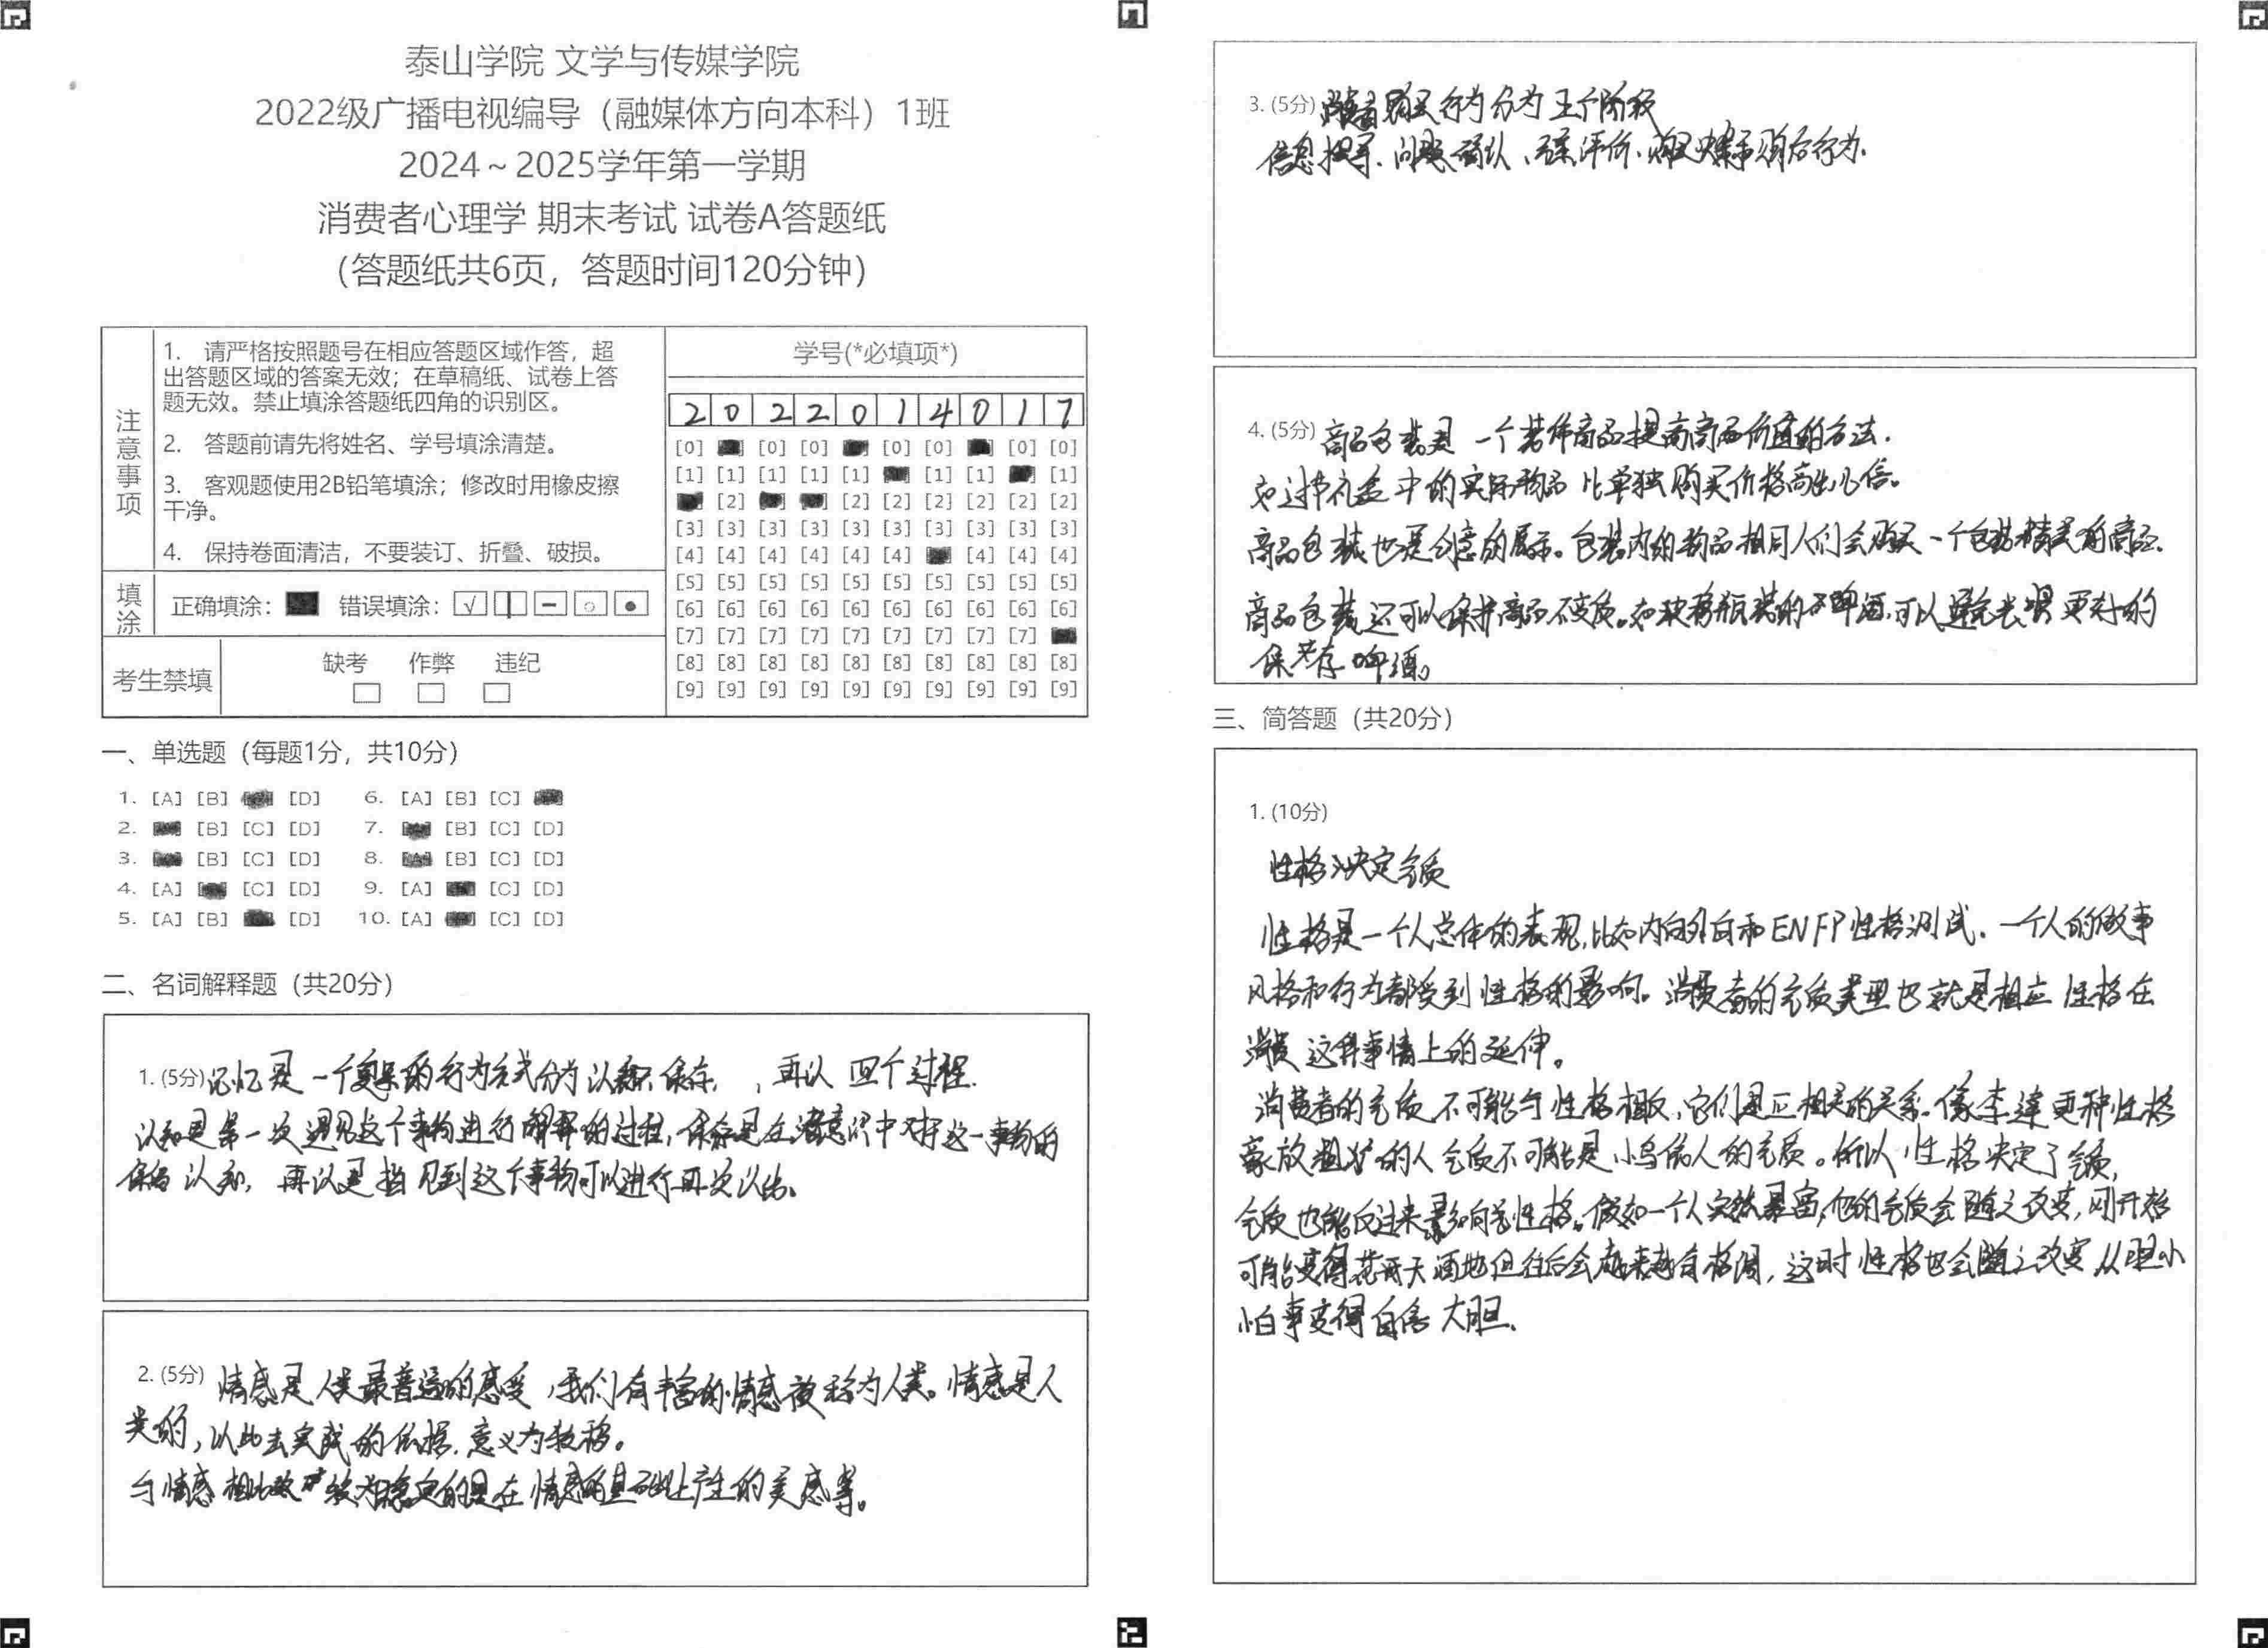 泰山学院 文学与传媒学院
2022级广播电视编导（融媒体方向本科）1班
2024～2025学年第一学期
消费者心理学 期末考试 试卷A答题纸
（答题纸共6页，答题时间120分钟）
注意事项
1. 请严格按照题号在相应答题区域作答，超
出答题区域的答案无效；在草稿纸、试卷上答
题无效。禁止填涂答题纸四角的识别区。
2. 答题前请先将姓名、学号填涂清楚。
3. 客观题使用2B铅笔填涂；修改时用橡皮擦
干净。
4. 保持卷面清洁，不要装订、折叠、破损。
填涂
正确填涂： 错误填涂：
考生禁填
缺考 作弊 违纪
学号(*必填项*)
2 0 2 2 0 1 4 0 1 7
[0] [0] [0] [0] [0] [0] [0]
[1] [1] [1] [1] [1] [1] [1] [1]
[2] [2] [2] [2] [2] [2] [2]
[3] [3] [3] [3] [3] [3] [3] [3] [3] [3]
[4] [4] [4] [4] [4] [4] [4] [4] [4]
[5] [5] [5] [5] [5] [5] [5] [5] [5] [5]
[6] [6] [6] [6] [6] [6] [6] [6] [6] [6]
[7] [7] [7] [7] [7] [7] [7] [7] [7]
[8] [8] [8] [8] [8] [8] [8] [8] [8] [8]
[9] [9] [9] [9] [9] [9] [9] [9] [9] [9]
一、单选题（每题1分，共10分）
1. [A] [B] [D] 6. [A] [B] [C]
2. [B] [C] [D] 7. [B] [C] [D]
3. [B] [C] [D] 8. [A] [B] [C] [D]
4. [A] [C] [D] 9. [A] [C] [D]
5. [A] [B] [D] 10. [A] [C] [D]
二、名词解释题（共20分）
1. (5分) 记忆是一个复杂的行为方式分为认知、保存、，再认 四个过程.
认知是第一次遇见这个事物进行解释的过程，保存是在潜意识中对这一事物的
保留认知，再认是指见到这个事物可以进行再次认出。
2. (5分) 情感是人类最普遍的感受，我们有丰富的情感被称为人类。情感是人
类的，以此去实践的依据，意义为敏移。
与情感相比较较为稳定的是在情感的基础上产生的美感等。
3. (5分) 消费者购买行为分为五个阶段
信息搜寻、问题确认、方案评价、购买决策和购后行为.
4. (5分) 商品包装是一个装饰商品提高商品价值的方法.
如过节礼盒中的实际物品比单独购买价格高出几倍。
商品包装也是创意的展示。包装内的物品相同人们会购买一个包装精美的商品.
商品包装还可以保护商品不变质。如玻璃瓶装的啤酒,可以避免光照更好的
保存啤酒。
三、简答题（共20分）
1. (10分)
性格决定气质
性格是一个人总体的表现,比如内向外向和ENFP性格测试.一个人的做事
风格和行为都受到性格的影响。消费者的气质类型也就是相应性格在
消费这件事情上的延伸。
消费者的气质不可能与性格相反,它们是正相关的关系.像李逵更种性格
豪放粗犷的人气质不可能是小鸟依人的气质。所以,性格决定了气质,
气质也能反过来影响着性格。假如一个人突然暴富,他的气质会随之改变,刚开始
可能变得花天酒地但往后会越来越有格调，这时性格也会随之改变,从胆小
怕事变得自信大胆.